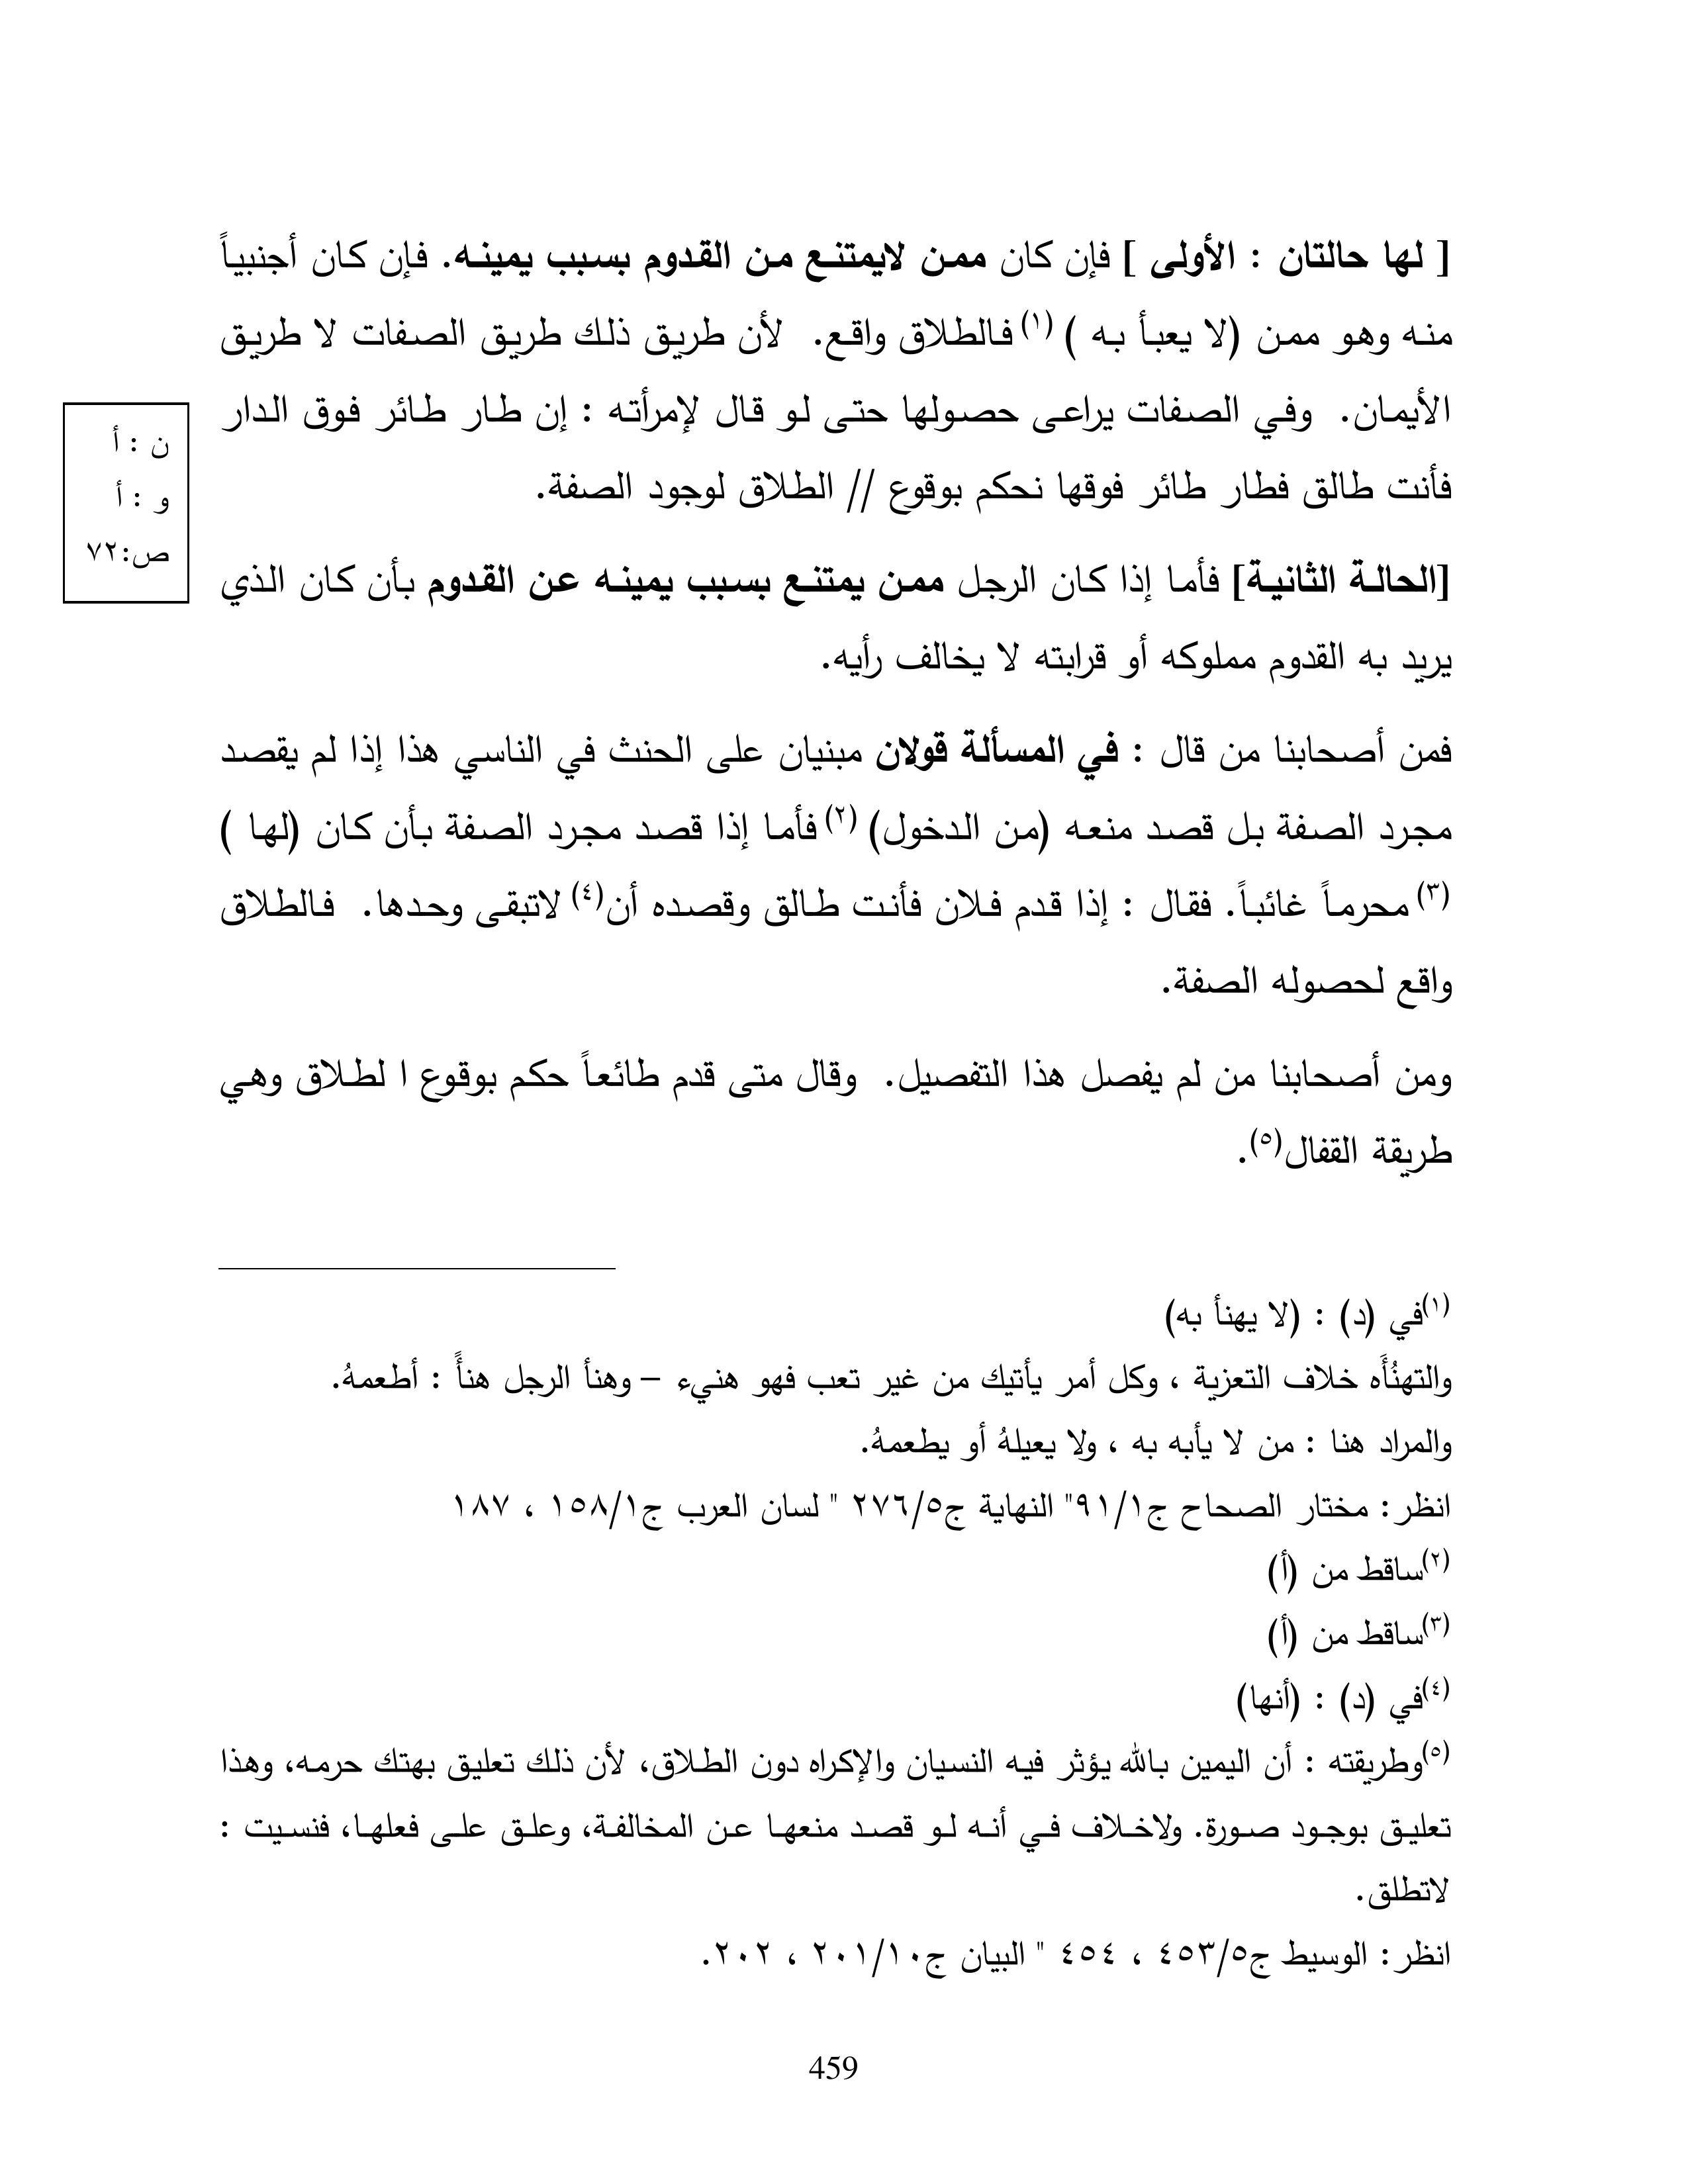 [ لها حالتان : الأولى ] فإن كان ممن لايمتنع من القدوم بسبب يمينه. فإن كان أجنبياً
منه وهو ممن (لا يعبأ به ) (١) فالطلاق واقع. لأن طريق ذلك طريق الصفات لا طريق
الأيمان. وفي الصفات يراعى حصولها حتى لو قال لإمرأته : إن طار طائر فوق الدار
فأنت طالق فطار طائر فوقها نحكم بوقوع // الطلاق لوجود الصفة.
ن : أ
و : أ
ص:٧٢
[الحالة الثانية] فأما إذا كان الرجل ممن يمتنع بسبب يمينه عن القدوم بأن كان الذي
يريد به القدوم مملوكه أو قرابته لا يخالف رأيه.
فمن أصحابنا من قال : في المسألة قولان مبنيان على الحنث في الناسي هذا إذا لم يقصد
مجرد الصفة بل قصد منعه (من الدخول) (٢) فأما إذا قصد مجرد الصفة بأن كان (لها )
(٣) محرماً غائباً. فقال : إذا قدم فلان فأنت طالق وقصده أن(٤) لاتبقى وحدها. فالطلاق
واقع لحصوله الصفة.
ومن أصحابنا من لم يفصل هذا التفصيل. وقال متى قدم طائعاً حكم بوقوع ا لطلاق وهي
طريقة القفال(٥).
(١)في (د) : (لا يهنأ به)
والتهنُأَه خلاف التعزية ، وكل أمر يأتيك من غير تعب فهو هنيء – وهنأ الرجل هنأً : أطعمهُ.
والمراد هنا : من لا يأبه به ، ولا يعيلهُ أو يطعمهُ.
انظر: مختار الصحاح ج١/٩١" النهاية ج٥/٢٧٦ " لسان العرب ج١/١٥٨ ، ١٨٧
(٢)ساقط من (أ)
(٣)ساقط من (أ)
(٤)في (د) : (أنها)
(٥)وطريقته : أن اليمين بالله يؤثر فيه النسيان والإكراه دون الطلاق، لأن ذلك تعليق بهتك حرمه، وهذا
تعليق بوجود صورة. ولاخلاف في أنه لو قصد منعها عن المخالفة، وعلق على فعلها، فنسيت :
لاتطلق.
انظر: الوسيط ج٥/٤٥٣ ، ٤٥٤ " البيان ج١٠/٢٠١ ، ٢٠٢.
459